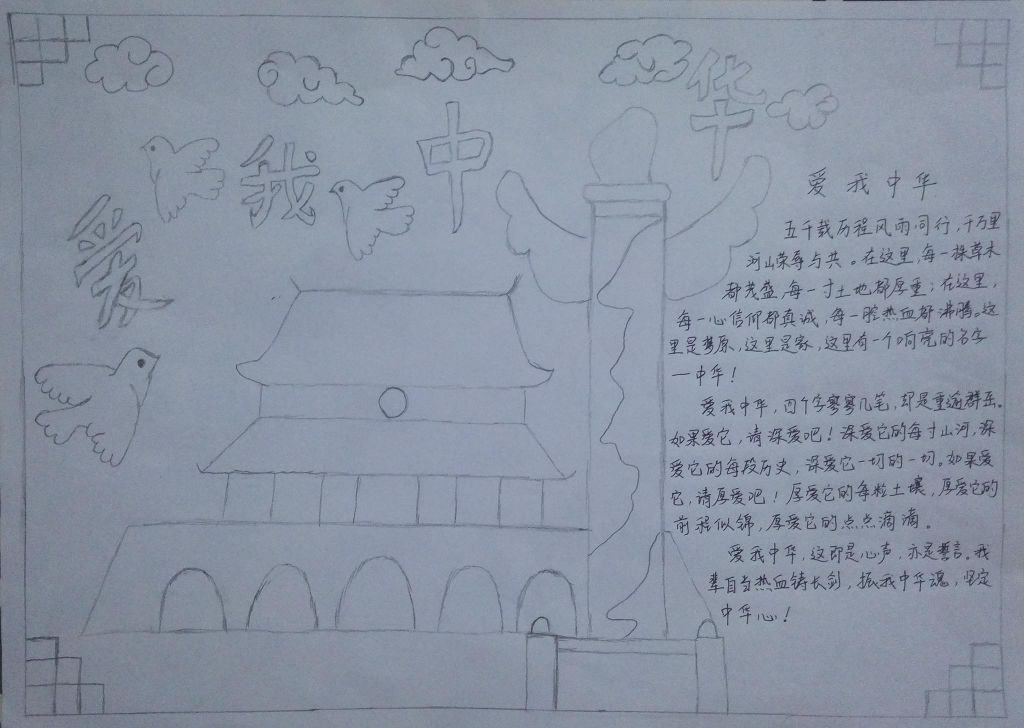 爱我中华
爱我中华
五千载历程风雨同行,千万里
河山荣辱与共。在这里,每一棵草木
都茂盛,每一寸土地都厚重;在这里,
每一心信仰都真诚,每一腔热血都沸腾。这
里是梦原,这里是家,这里有一个响亮的名字
—中华!
爱我中华,四个字寥寥几笔,却是重逾群岳。
如果爱它,请深爱吧!深爱它的每寸山河,深
爱它的每段历史,深爱它一切的一切。如果爱
它,请厚爱吧!厚爱它的每粒土壤,厚爱它的
前程似锦,厚爱它的点点滴滴。
爱我中华,这即是心声,亦是誓言。我
辈自当热血铸长剑,振我中华魂,坚定
中华心!